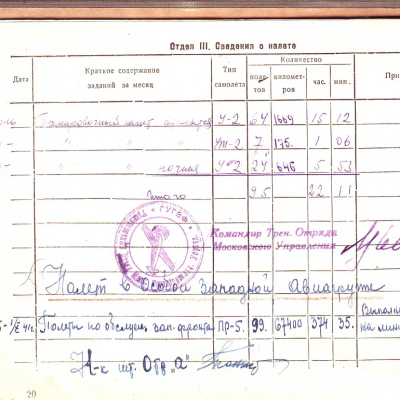 Отдел III. Сведения о налете
Дата
Краткое содержание заданий за месяц
Тип самолета
Количество
поле-тов
километ-ров
час.
мин.
При
Тренировочный налет
У-2 64 1669 15 12
" " Ут-2 7 175 1 06
" ночные У-2 24 646 5 53
Итого 95 22 11
Командир Трен. Отряда
Московского Управления
Налет в Особой Западной Авиагруппе
Полеты по обслуж. зап. фронта ПР-5. 99. 67400 374 35.
на
Н-к шт. Отр "А"
20